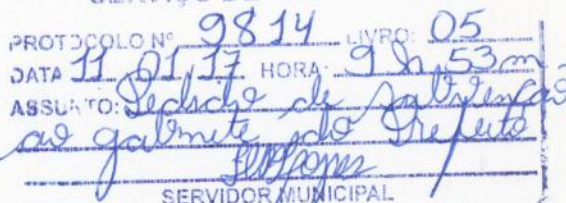 PROTOCOLO Nº 9814 LIVRO: 05
DATA 11 01,17 HORA: 9h,53m
ASSUNTO: Pedido de subvenção
ao gabinete do Prefeito
SERVIDOR MUNICIPAL